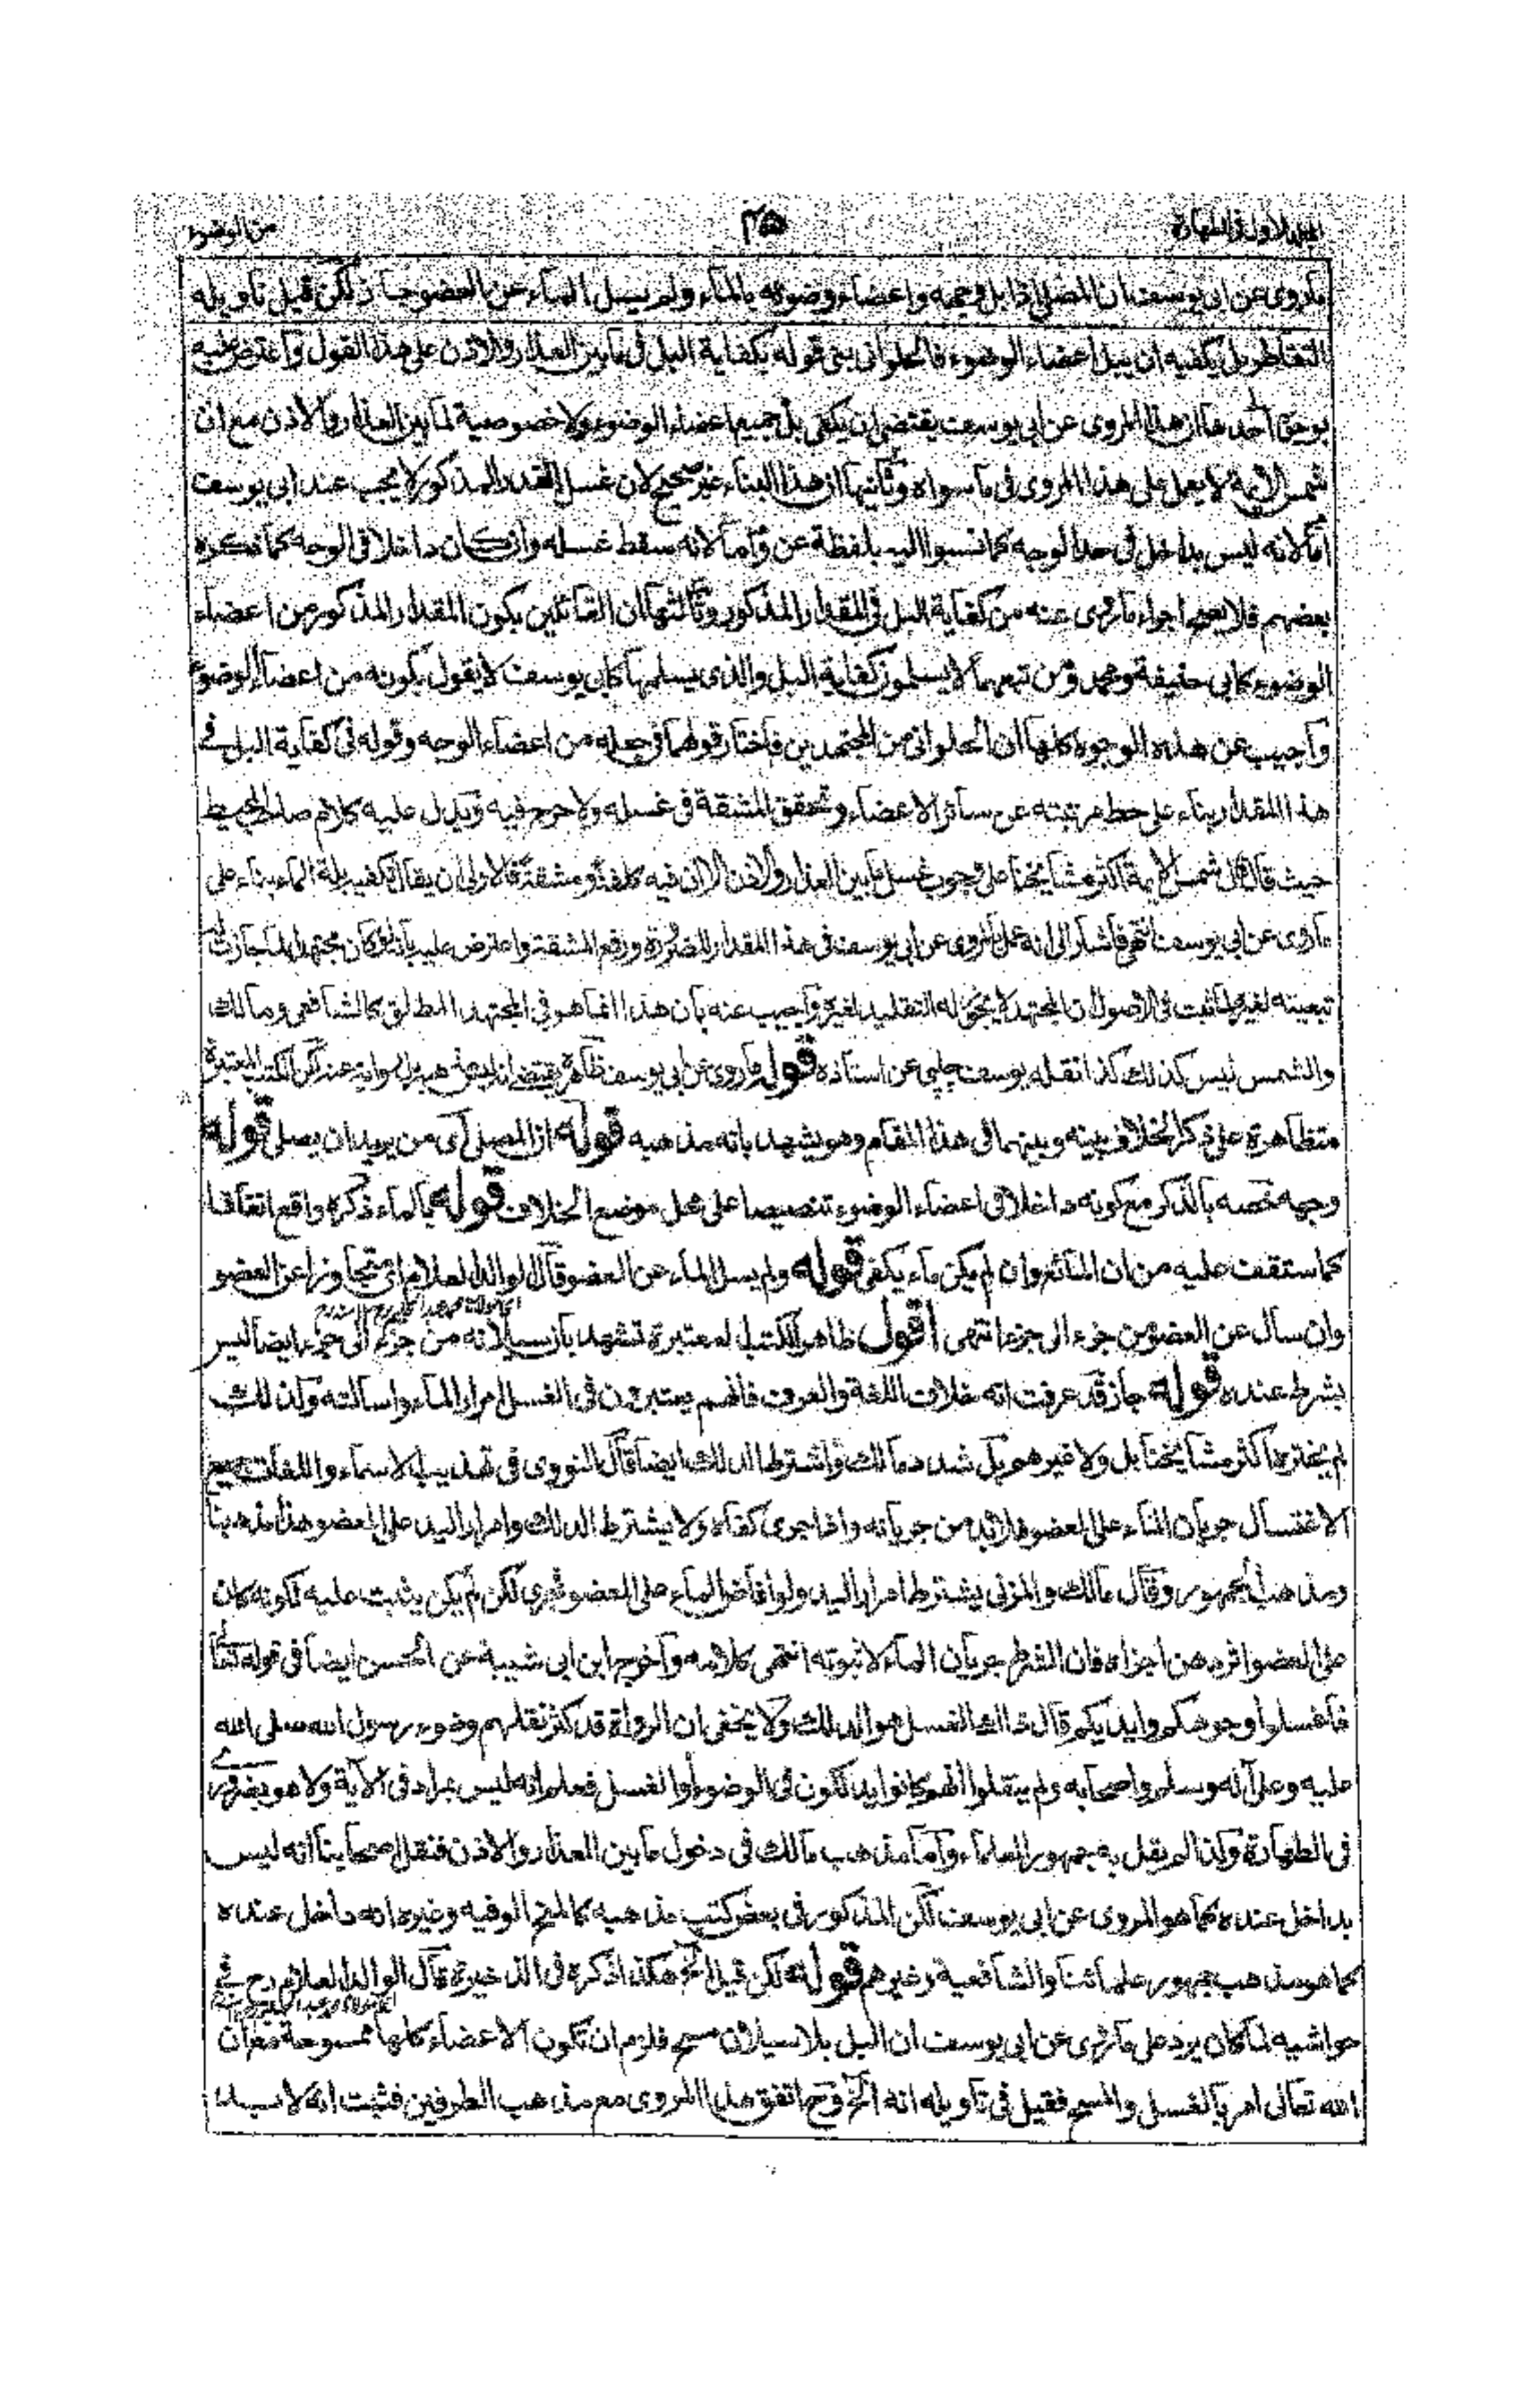 المجلد الاول فى الطهارة ٣٥ من الوضوء
ما روى عن ابى يوسف ان المصلى اذا بل وجهه واعضاء وضوئه بالماء ولم يسل الماء عن العضو جاز لكن قيل تاويله
التقاطر بل يكفيه ان يبل اعضاء الوضوء فالحلوانى بنى قوله بكفاية البل فى ما بين العذار والاذن على هذا القول واعترض عليه
بوجوه احدها ان هذا المروى عن ابى يوسف يقتضى ان يكفى بل جميع اعضاء الوضوء ولا خصوصية لما بين العذار والاذن مع ان
شمس الائمة لا يعمل على هذا المروى فى ما سواه وثانيها ان هذا البناء غير صحيح لان غسل القدر المذكور لا يجب عند ابى يوسف
اما لانه ليس بداخل فى حد الوجه كما نسبوا اليه بلفظة عن واما لانه سقط غسله وان كان داخلا فى الوجه كما ذكره
بعضهم فلا يصح اجراء ما روى عنه من كفاية البل فى المقدار المذكور وثالثها ان القائلين بكون المقدار المذكور من اعضاء
الوضوء كابى حنيفة ومحمد ومن تبعهما لا يسلمون كفاية البل والذى يسلمها كابى يوسف لا يقول بكونه من اعضاء الوضوء
واجيب عن هذه الوجوه كلها ان الحلوانى من المجتهدين فاختار قولهما فى جعله من اعضاء الوجه وقوله فى كفاية البل فى
هذا المقدار بناء على حط مرتبته عن سائر الاعضاء وتحقق المشقة فى غسله ولا حرج فيه ويدل عليه كلام صاحب المحيط
حيث قال قال شمس الائمة اكثر مشايخنا على وجوب غسل ما بين العذار والاذن الا ان فيه كلفة ومشقة فالاولى ان يقال تكفيه بلة الماء بناء على
ما روى عن ابى يوسف انتهى فاشار الى انه عمل بالمروى عن ابى يوسف فى هذا المقدار للضرورة ورفع المشقة واعترض عليه بانه لو كان مجتهدا لما جاز
تبعيته لغيره لما ثبت فى الاصول ان المجتهد لا يجوز له التقليد لغيره واجيب عنه بان هذا انما هو فى المجتهد المطلق كالشافعى ومالك
والشمس ليس كذلك كذا نقله يوسف چلپى عن استاذه قوله ما روى عن ابى يوسف ظاهره يقتضى انه ليس مذهبه بل رواية عنه لكن الكتب المعتبرة
متظاهرة على ذكر الخلاف بينه وبينهما فى هذا المقام وهو يشهد بانه مذهبه قوله ان المصلى اى من يريد ان يصلى قوله
وجهه خصه بالذكر مع كونه داخلا فى اعضاء الوضوء تنصيصا على محل موضع الخلاف قوله بالماء ذكره واقع اتفاقا
كما ستقف عليه من ان المتاثر وان لم يكن ماء يكفى قوله ولم يسل الماء عن العضو قال الوالد العلام اى متجاوزا عن العضو
وان سال عن العضو من جزء الى جزء انتهى اقول ظاهر الكتب المعتبرة تشهد بان سيلانه من جزء الى جزء ايضا ليس
بشرط عنده قوله جاز قد عرفت انه خلاف اللغة والعرف فانهم يعتبرون فى الغسل امرار الماء واسالته ولذلك
لم يختره اكثر مشايخنا بل ولا غيرهم بل شدد مالك واشترط الدلك ايضا قال النووى فى تهذيب الاسماء واللغات
الاغتسال جريان الماء على العضو فلا بد من جريانه واذا جرى كفاه ولا يشترط الدلك وامرار اليد على العضو هذا مذهبنا
ومذهب الجمهور وقال مالك والمزنى يشترط امرار اليد ولو افاض الماء على العضو فجرى لكن لم يكن يثبت عليه لكونه كان
على العضو اثر دهن اجزاه فان الشرط جريان الماء لا ثبوته انتهى كلامه واخرج ابن ابى شيبة عن الحسن ايضا فى قوله تعالى
فاغسلوا وجوهكم وايديكم قال ذلك الغسل هو الدلك ولا يخفى ان الرواة قد كثر نقلهم وضوء رسول الله صلى الله
عليه وعلى آله وسلم واصحابه ولم ينقلوا انهم كانوا يدلكون فى الوضوء او الغسل فعلم انه ليس بمراد فى الآية ولا هو بضرورى
فى الطهارة ولذا لم يقل به جمهور العلماء واما مذهب مالك فى دخول ما بين العذار والاذن فنقل اصحابنا انه ليس
بداخل عنده كما هو المروى عن ابى يوسف لكن المذكور فى بعض كتب مذهبه كالمنح الوفيه وغيره انه داخل عنده
كما هو مذهب جمهور علمائنا والشافعية وغيرهم قوله لكن قيل الخ هكذا ذكره فى الذخيرة قال الوالد العلام رح فى
حواشيه لما كان يرد على ما روى عن ابى يوسف ان البل بلا سيلان مسح فلزم ان تكون الاعضاء كلها ممسوحة مع ان
الله تعالى امر بالغسل والمسح فقيل فى تاويله انه الخ وح اتفق هذا المروى مع مذهب الطرفين فثبت انه لا بد